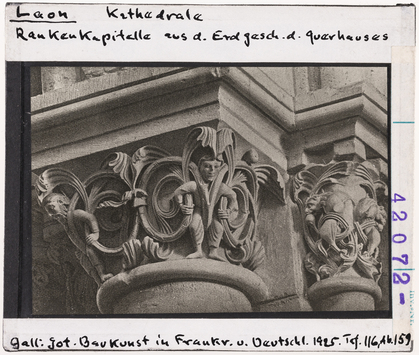 Laon Kathedrale
Rankenkapitelle aus d. Erdgesch. d. Querhauses
42072-
Gall: Got. Baukunst in Frankr. u. Deutschl. 1925. Taf. 116, Ab. 159